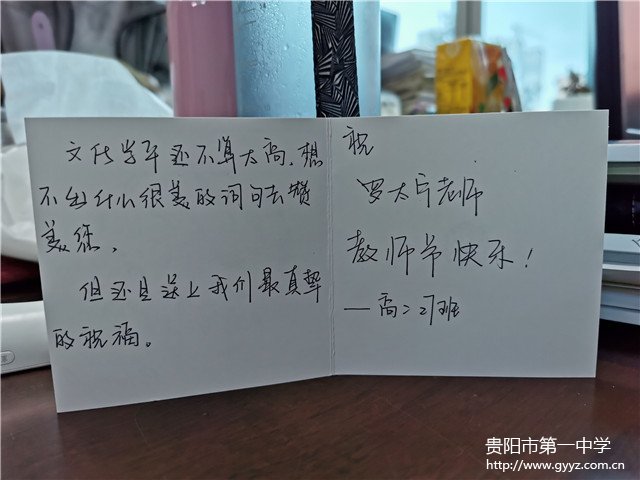 文化水平还不算太高，想
不出什么很美的词句去赞
美您，
但还是送上我们最真挚
的祝福。
祝
罗太
老师
教师节快乐！
——高二27班
贵阳市第一中学
http://www.gyyz.com.cn